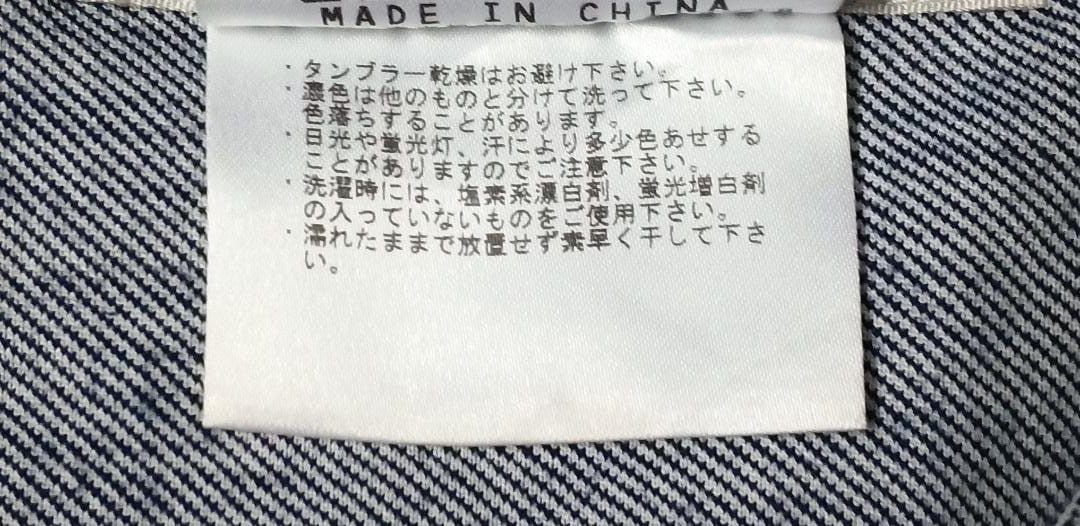 MADE IN CHINA
・タンブラー乾燥はお避け下さい。
・濃色は他のものと分けて洗って下さい。
色落ちすることがあります。
・日光や蛍光灯、汗により多少色あせする
ことがありますのでご注意下さい。
・洗濯時には、塩素系漂白剤、蛍光増白剤
の入っていないものをご使用下さい。
・濡れたままで放置せず素早く干して下さ
い。